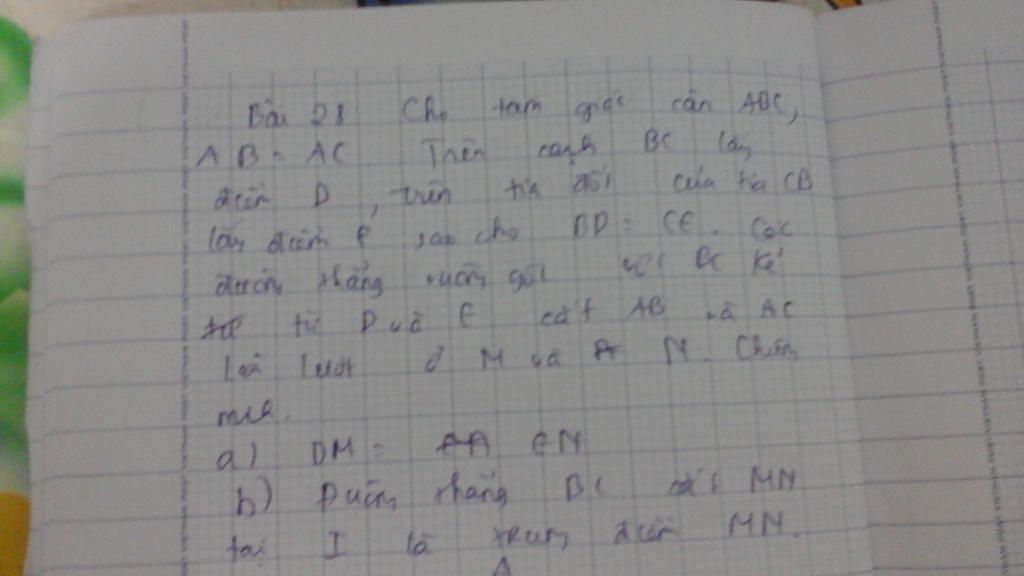 Bài 28 Cho tam giác cân ABC,
AB = AC Trên cạnh BC lấy
điểm D, trên tia đối của tia CB
lấy điểm E sao cho BD = CE. Các
đường thẳng vuông góc với BC kẻ
từ D và E cắt AB và AC
lần lượt ở M và N. Chứng
minh.
a) DM = EN
b) Đường thẳng BC cắt MN
tại I là trung điểm MN.
A